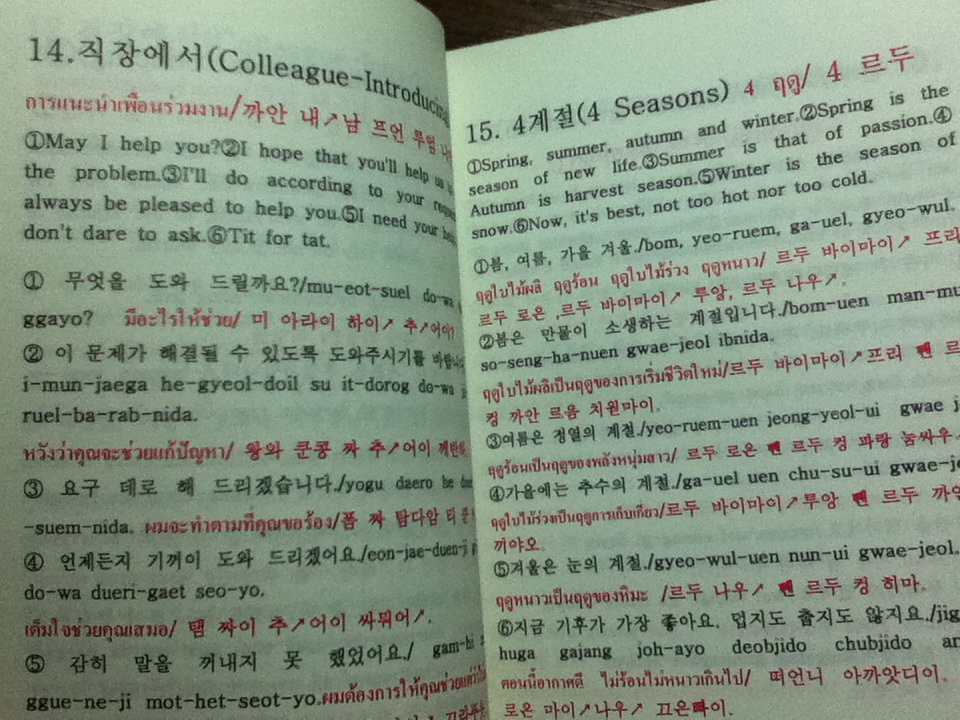 14.직장에서(Colleague-Introducing
การแนะนำเพื่อนร่วมงาน/까안 내↗남 프언 루엄
①May I help you?②I hope that you'll help us
the problem.③I'll do according to your
always be pleased to help you.⑤I need your
don't dare to ask.⑥Tit for tat.
① 무엇을 도와 드릴까요?/mu-eot-suel do-wa
ggayo? มีอะไรให้ช่วย/ 미 아라이 하이↗ 추↗어이?
② 이 문제가 해결될 수 있도록 도와주시기를
i-mun-jaega he-gyeol-doil su it-dorog do-wa
ruel-ba-rab-nida.
หวังว่าคุณจะช่วยแก้ปัญหา/ 왕와 쿤콩 짜 추↗어이
③ 요구 데로 해 드리겠습니다./yogu daero he
-suem-nida. ผมจะทำตามที่คุณขอร้อง/폼 짜 탐다암 티
④ 언제든지 기꺼이 도와 드리겠어요./eon-jae-duen-ji
do-wa dueri-gaet seo-yo.
เต็มใจช่วยคุณเสมอ/ 탬 짜이 추↗어이 싸뭐어↗.
⑤ 감히 말을 꺼내지 못 했었어요./ gam-hi
ggue-ne-ji mot-het-seot-yo.ผมต้องการให้คุณช่วย
15. 4계절(4 Seasons) 4 ฤดู/ 4 르두
①Spring, summer, autumn and winter.②Spring is the
season of new life.③Summer is that of passion.④
Autumn is harvest season.⑤Winter is the season of
snow.⑥Now, it's best, not too hot nor too cold.
①봄, 여름, 가을 겨울./bom, yeo-ruem, ga-uel, gyeo-wul.
ฤดูใบไม้ผลิ ฤดูร้อน ฤดูใบไม้ร่วง ฤดูหนาว/ 르두 바이마이↗ 프리
르두 로은 ,르두 바이마이↗ 루앙, 르두 나우↗.
②봄은 만물이 소생하는 계절입니다./bom-uen man-mu
so-seng-ha-nuen gwae-jeol ibnida.
ฤดูใบไม้ผลิเป็นฤดูของการเริ่มชีวิตใหม่/르두 바이마이↗프리 뻰 르
컹 까안 르음 치윋마이.
③여름은 정열의 계절./yeo-ruem-uen jeong-yeol-ui gwae
ฤดูร้อนเป็นฤดูของพลังหนุ่มสาว/ 르두 로은 뻰 르두 컹 파랑 눔싸우
④가을에는 추수의 계절./ga-uel uen chu-su-ui gwae-
ฤดูใบไม้ร่วงเป็นฤดูการเก็บเกี่ยว/르두 바이마이↗루앙 뻰 르두 까안
끼야오.
⑤겨울은 눈의 계절./gyeo-wul-uen nun-ui gwae-jeol.
ฤดูหนาวเป็นฤดูของหิมะ /르두 나우↗ 뻰 르두 컹 히마.
⑥지금 기후가 가장 좋아요. 덥지도 춥지도 않지요./jig
huga gajang joh-ayo deobjido chubjido an
ตอนนี้อากาศดี ไม่ร้อนไม่หนาวเกินไป/ 떠언니 아까앗디이.
로은 마이↗나우↗ 끄은빠이.